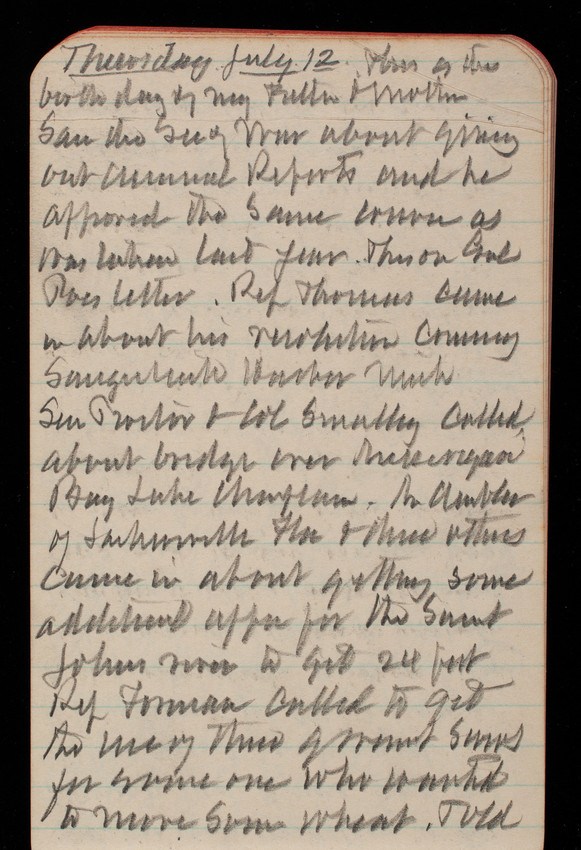 Thursday July 12. This is the
birth day of my Father & Mother
Saw the Sec of War about giving
out annual Reports and he
approved the same course as
was taken last year. This on Genl
Poes letter. Rep Thomas came
in about his resolution
Harbor Mich
Sen Proctor & Col Smalley called
about bridge over
Bay Lake Champlain. Mr
of Jacksonville Fla & three others
came in about getting some
additional appn for the Saint
Johns river to get 24 feet
Rep Forman called to get
the use of three
for some one who wanted
to move some wheat. Told